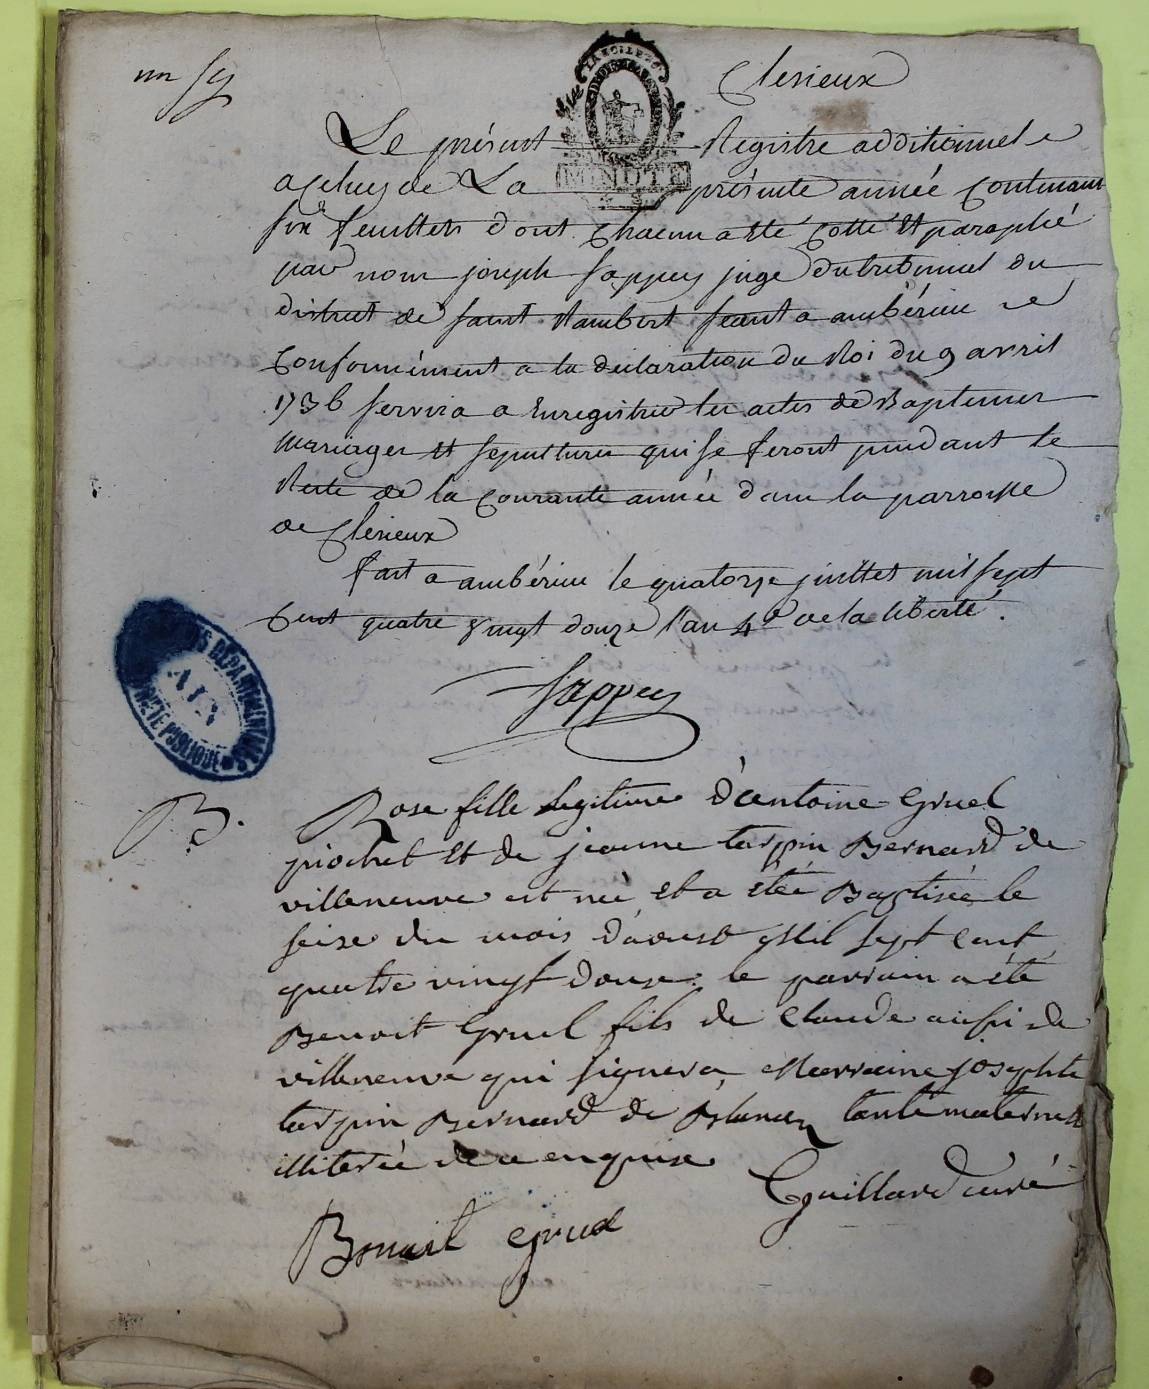 un Sy
Clesieux
LA LOI LE ROI
MINUTE
Le présent Registre additionnel
a Celuy de La présente année Contenant
six feuillets dont Chacun a été Cotté Et paraphé
par nous joseph Sappey juge du tribunal du
district de saint Rambert seant a ambérieu
Conformément a la déclaration du Roi du 9 avril
1736 servira a Enregistrer les actes de Baptemes
mariages Et sepultures qui se feront pendant le
Reste de la Courante année dans la parroisse
de Clesieux
fait a ambérieu le quatorze juillet mil sept
Cent quatre vingt douze l'an 4e de la liberté.
Sappey
ARCHIVES DÉPARTEMENTALES
AIN
PROPRIÉTÉ PUBLIQUE
B.
Rose fille legitime d'antoine Gruel
piochet Et de jeanne tarpin Bernard de
villeneuve est née et a étée Baptisée le
seize du mois d'aoust Mil sept Cent
quatre vingt douze. le parrain a été
Benoit Gruel fils de Claude aussi de
villeneuve qui signera, Marraine josephte
tarpin Bernard de Blanaz tante maternelle
illiterée de ce enquise
Guillard curé
Benoit Gruel